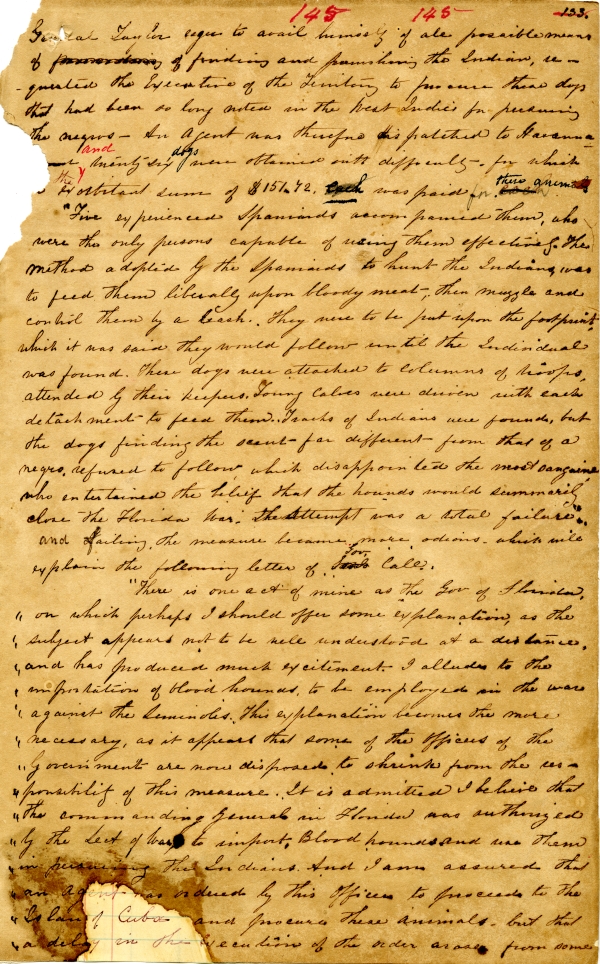 145 145 133.
General Taylor eager to avail himself of all possible means
of finding and punishing the Indian, re-
-quested the Executive of the Territory to procure these dogs
that had been so long noted in the West Indies for pursuing
the negros - An Agent was therefore dispatched to Havanna
and twenty six dogs were obtained with difficulty - for which
the exorbitant sum of $151.72. each was paid for these animals
"Five experienced Spaniards accompanied them, who
were the only persons capable of using them effectively. The
method adopted by the Spaniards to hunt the Indians, was
to feed them liberally upon bloody meat-, then muzzle and
control them by a leash.. They were to be put upon the footprint,
which it was said they would follow until the Individual
was found. These dogs were attached to columns of troops,
attended by their keepers. Young Calves were driven with each
detachment to feed them. Tracks of Indians were found, but
the dogs finding the scent far different from that of a
negro, refused to follow, which disappointed the most sanguine
who entertained the belief that the hounds would summarily
close the Florida War. The attempt was a total failure".
and failing, the measure became more odious. which will
explain the following letter of Gov Call.
"There is one act of mine as the Gov of Florida,
" on which perhaps I should offer some explanation, as the
" subject appears not to be well understood at a distance,
" and has produced much excitment. I allude to the
" importation of blood hounds, to be employed in the war
" against the Seminoles. This explanation becomes the more
" necessary, as it appears that some of the Officers of the
" Government are now disposed to shrink from the res-
" ponsibility of this measure. It is admitted I believe that
" the commanding General in Florida was authorized
" by the Sect of War, to import, Blood hounds and use them
in pursuing the Indians. And I am assured that
an agent was ordered by this Officer to proceed to the
" Island of Cuba and procure these animals. but that
" a delay in the execution of the order arose from some